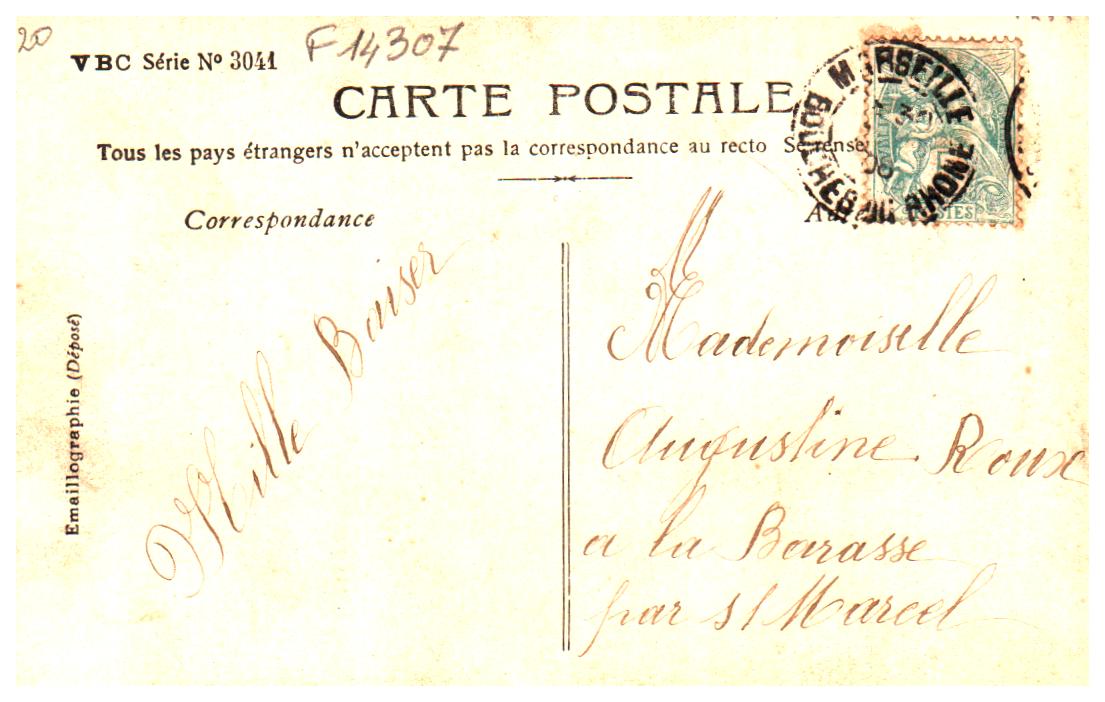 20
VBC Série Nº 3041
F 14307
CARTE POSTALE
Tous les pays étrangers n'acceptent pas la correspondance au recto
MARSEILLE
BOUCHES DU RHONE
Correspondance
Emaillographie (Déposé)
Mille Baiser
Mademoiselle
Augustine Roux
a la Barasse
par s/ Marcel